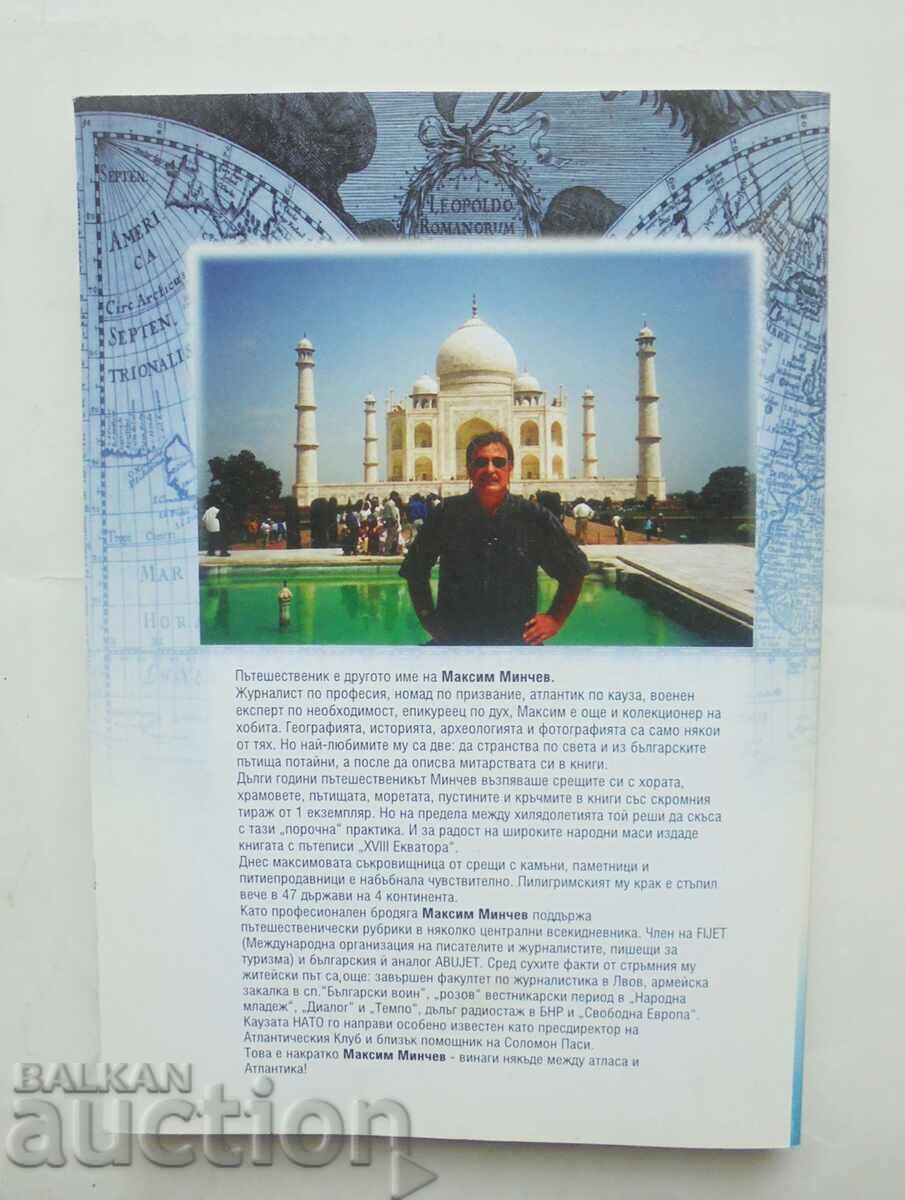 LEOPOLDO
ROMANORUM
SEPTEN.
AMERI
CA
Circ Arcticus
SEPTEN.
TRIONALIS
MAR
HORA
Пътешественик е другото име на Максим Минчев.
Журналист по професия, номад по призвание, атлантик по кауза, военен
експерт по необходимост, епикуреец по дух, Максим е още и колекционер на
хобита. Географията, историята, археологията и фотографията са само някои
от тях. Но най-любимите му са две: да странства по света и из българските
пътища потайни, а после да описва митарствата си в книги.
Дълги години пътешественикът Минчев възпяваше срещите си с хората,
храмовете, пътищата, моретата, пустините и кръчмите в книги със скромния
тираж от 1 екземпляр. Но на предела между хилядолетията той реши да скъса
с тази „порочна“ практика. И за радост на широките народни маси издаде
книгата с пътеписи „XVIII Екватора“.
Днес максимовата съкровищница от срещи с камъни, паметници и
питиепродавници е набъбнала чувствително. Пилигримският му крак е стъпил
вече в 47 държави на 4 континента.
Като професионален бродяга Максим Минчев поддържа
пътешественически рубрики в няколко централни всекидневника. Член на FIJET
(Международна организация на писателите и журналистите, пишещи за
туризма) и българския й аналог ABUJET. Сред сухите факти от стръмния му
житейски път са още: завършен факултет по журналистика в Лвов, армейска
закалка в сп."Български воин", „розов“ вестникарски период в „Народна
младеж“, „Диалог“ и „Темпо“, дълъг радиостаж в БНР и „Свободна Европа“.
Каузата НАТО го направи особено известен като пресдиректор на
Атлантическия Клуб и близък помощник на Соломон Паси.
Това е накратко Максим Минчев - винаги някъде между атласа и
Атлантика!
BALKAN
auction